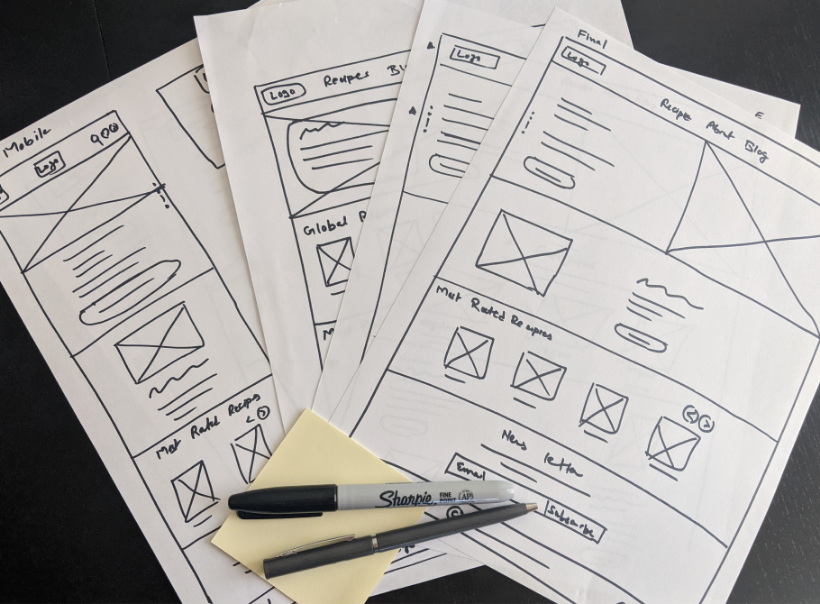 Mobile
Logo
Most Rated Recipes
Logo Recipes Bl
Global R
M
Logo
Final
Logo
Recipe About Blog
Most Rated Recipies
News letter
Email
Subscribe
Sharpie FINE POINT AP
E